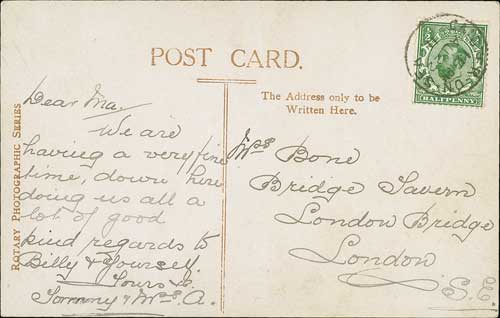 POST CARD.
The Address only to be
Written Here.
HALFPENNY
ROTARY PHOTOGRAPHIC SERIES
Dear Ma.
We are
having a very fine
time, down here
doing us all a
lot of good
kind regards to
Billy & Yourself.
Yours &c
Tommy & Mrs. A.
Mrs Bone
Bridge Tavern
London Bridge
London
S.E.